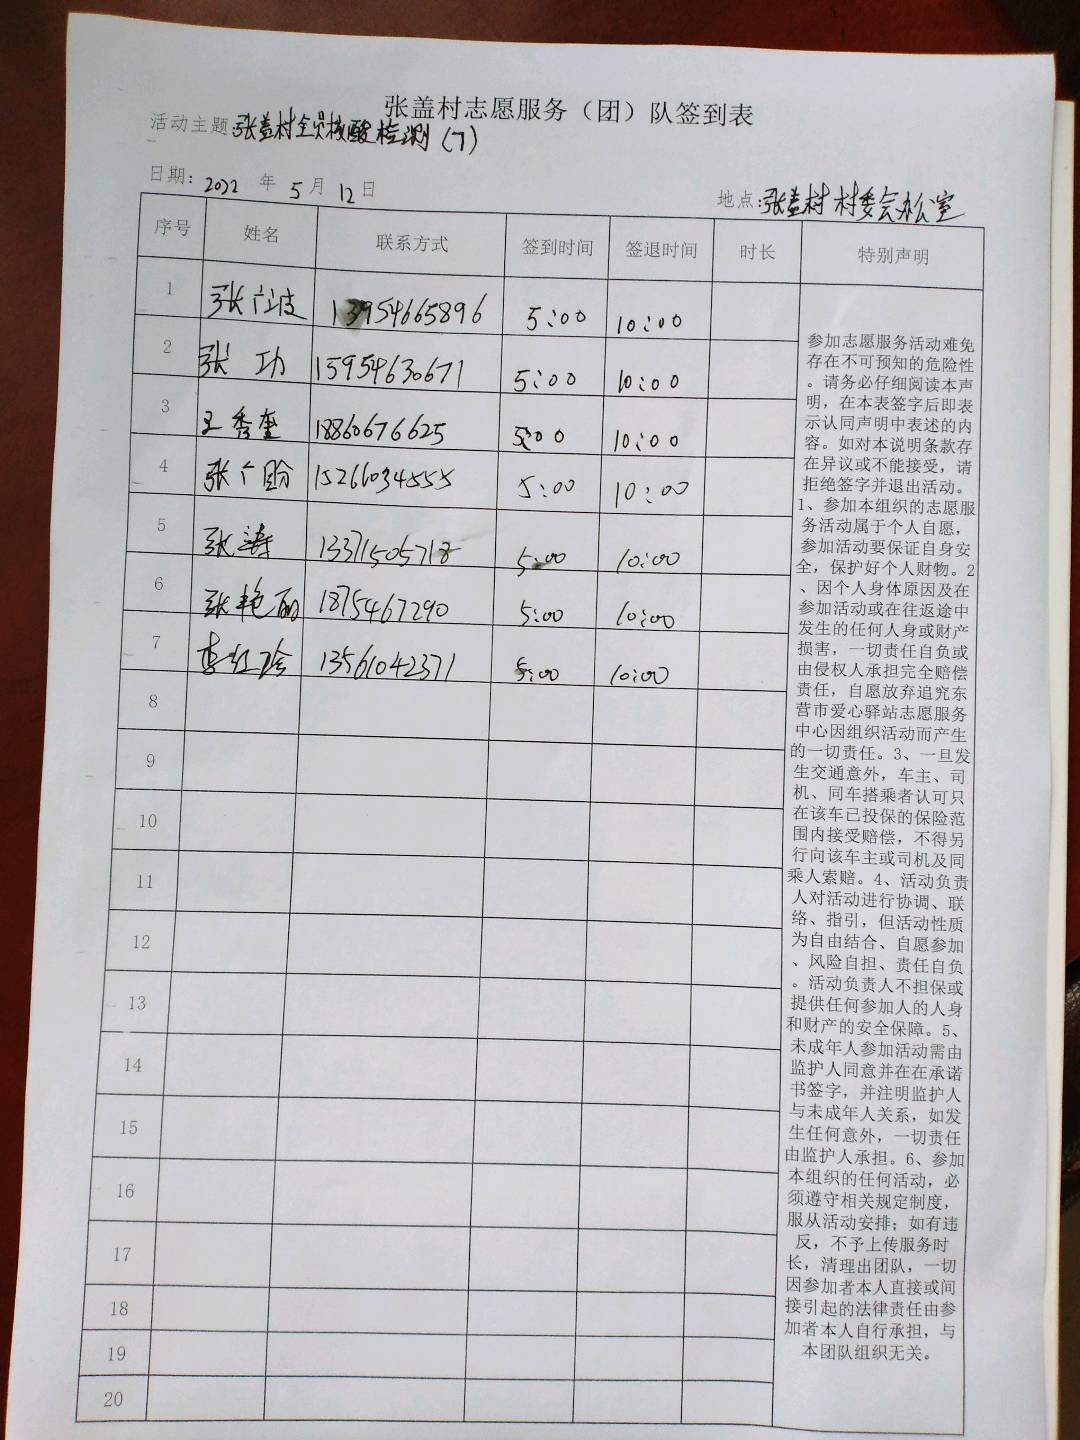 张盖村志愿服务（团）队签到表
活动主题:张盖村全员核酸检测（7）
日期: 2022 年 5 月 12 日 地点:张盖村村委会办公室
序号 姓名 联系方式 签到时间 签退时间 时长 特别声明
1 张广波 13954665896 5:00 10:00
2 张功 15954630671 5:00 10:00
3 王秀奎 18860676625 5:00 10:00
4 张广盼 15266034555 5:00 10:00
5 张涛 13371505718 5:00 10:00
6 张艳丽 1875467290 5:00 10:00
7 李红珍 13561042371 5:00 10:00
8
9
10
11
12
13
14
15
16
17
18
19
20
参加志愿服务活动难免
存在不可预知的危险性
。请务必仔细阅读本声
明，在本表签字后即表
示认同声明中表述的内
容。如对本说明条款存
在异议或不能接受，请
拒绝签字并退出活动。
1、参加本组织的志愿服
务活动属于个人自愿，
参加活动要保证自身安
全，保护好个人财物。2
、因个人身体原因及在
参加活动或在往返途中
发生的任何人身或财产
损害，一切责任自负或
由侵权人承担完全赔偿
责任，自愿放弃追究东
营市爱心驿站志愿服务
中心因组织活动而产生
的一切责任。3、一旦发
生交通意外，车主、司
机、同车搭乘者认可只
在该车已投保的保险范
围内接受赔偿，不得另
行向该车主或司机及同
乘人索赔。4、活动负责
人对活动进行协调、联
络、指引，但活动性质
为自由结合、自愿参加
、风险自担、责任自负
。活动负责人不担保或
提供任何参加人的人身
和财产的安全保障。5、
未成年人参加活动需由
监护人同意并在在承诺
书签字，并注明监护人
与未成年人关系，如发
生任何意外，一切责任
由监护人承担。6、参加
本组织的任何活动，必
须遵守相关规定制度，
服从活动安排；如有违
反，不予上传服务时
长，清理出团队，一切
因参加者本人直接或间
接引起的法律责任由参
加者本人自行承担，与
本团队组织无关。